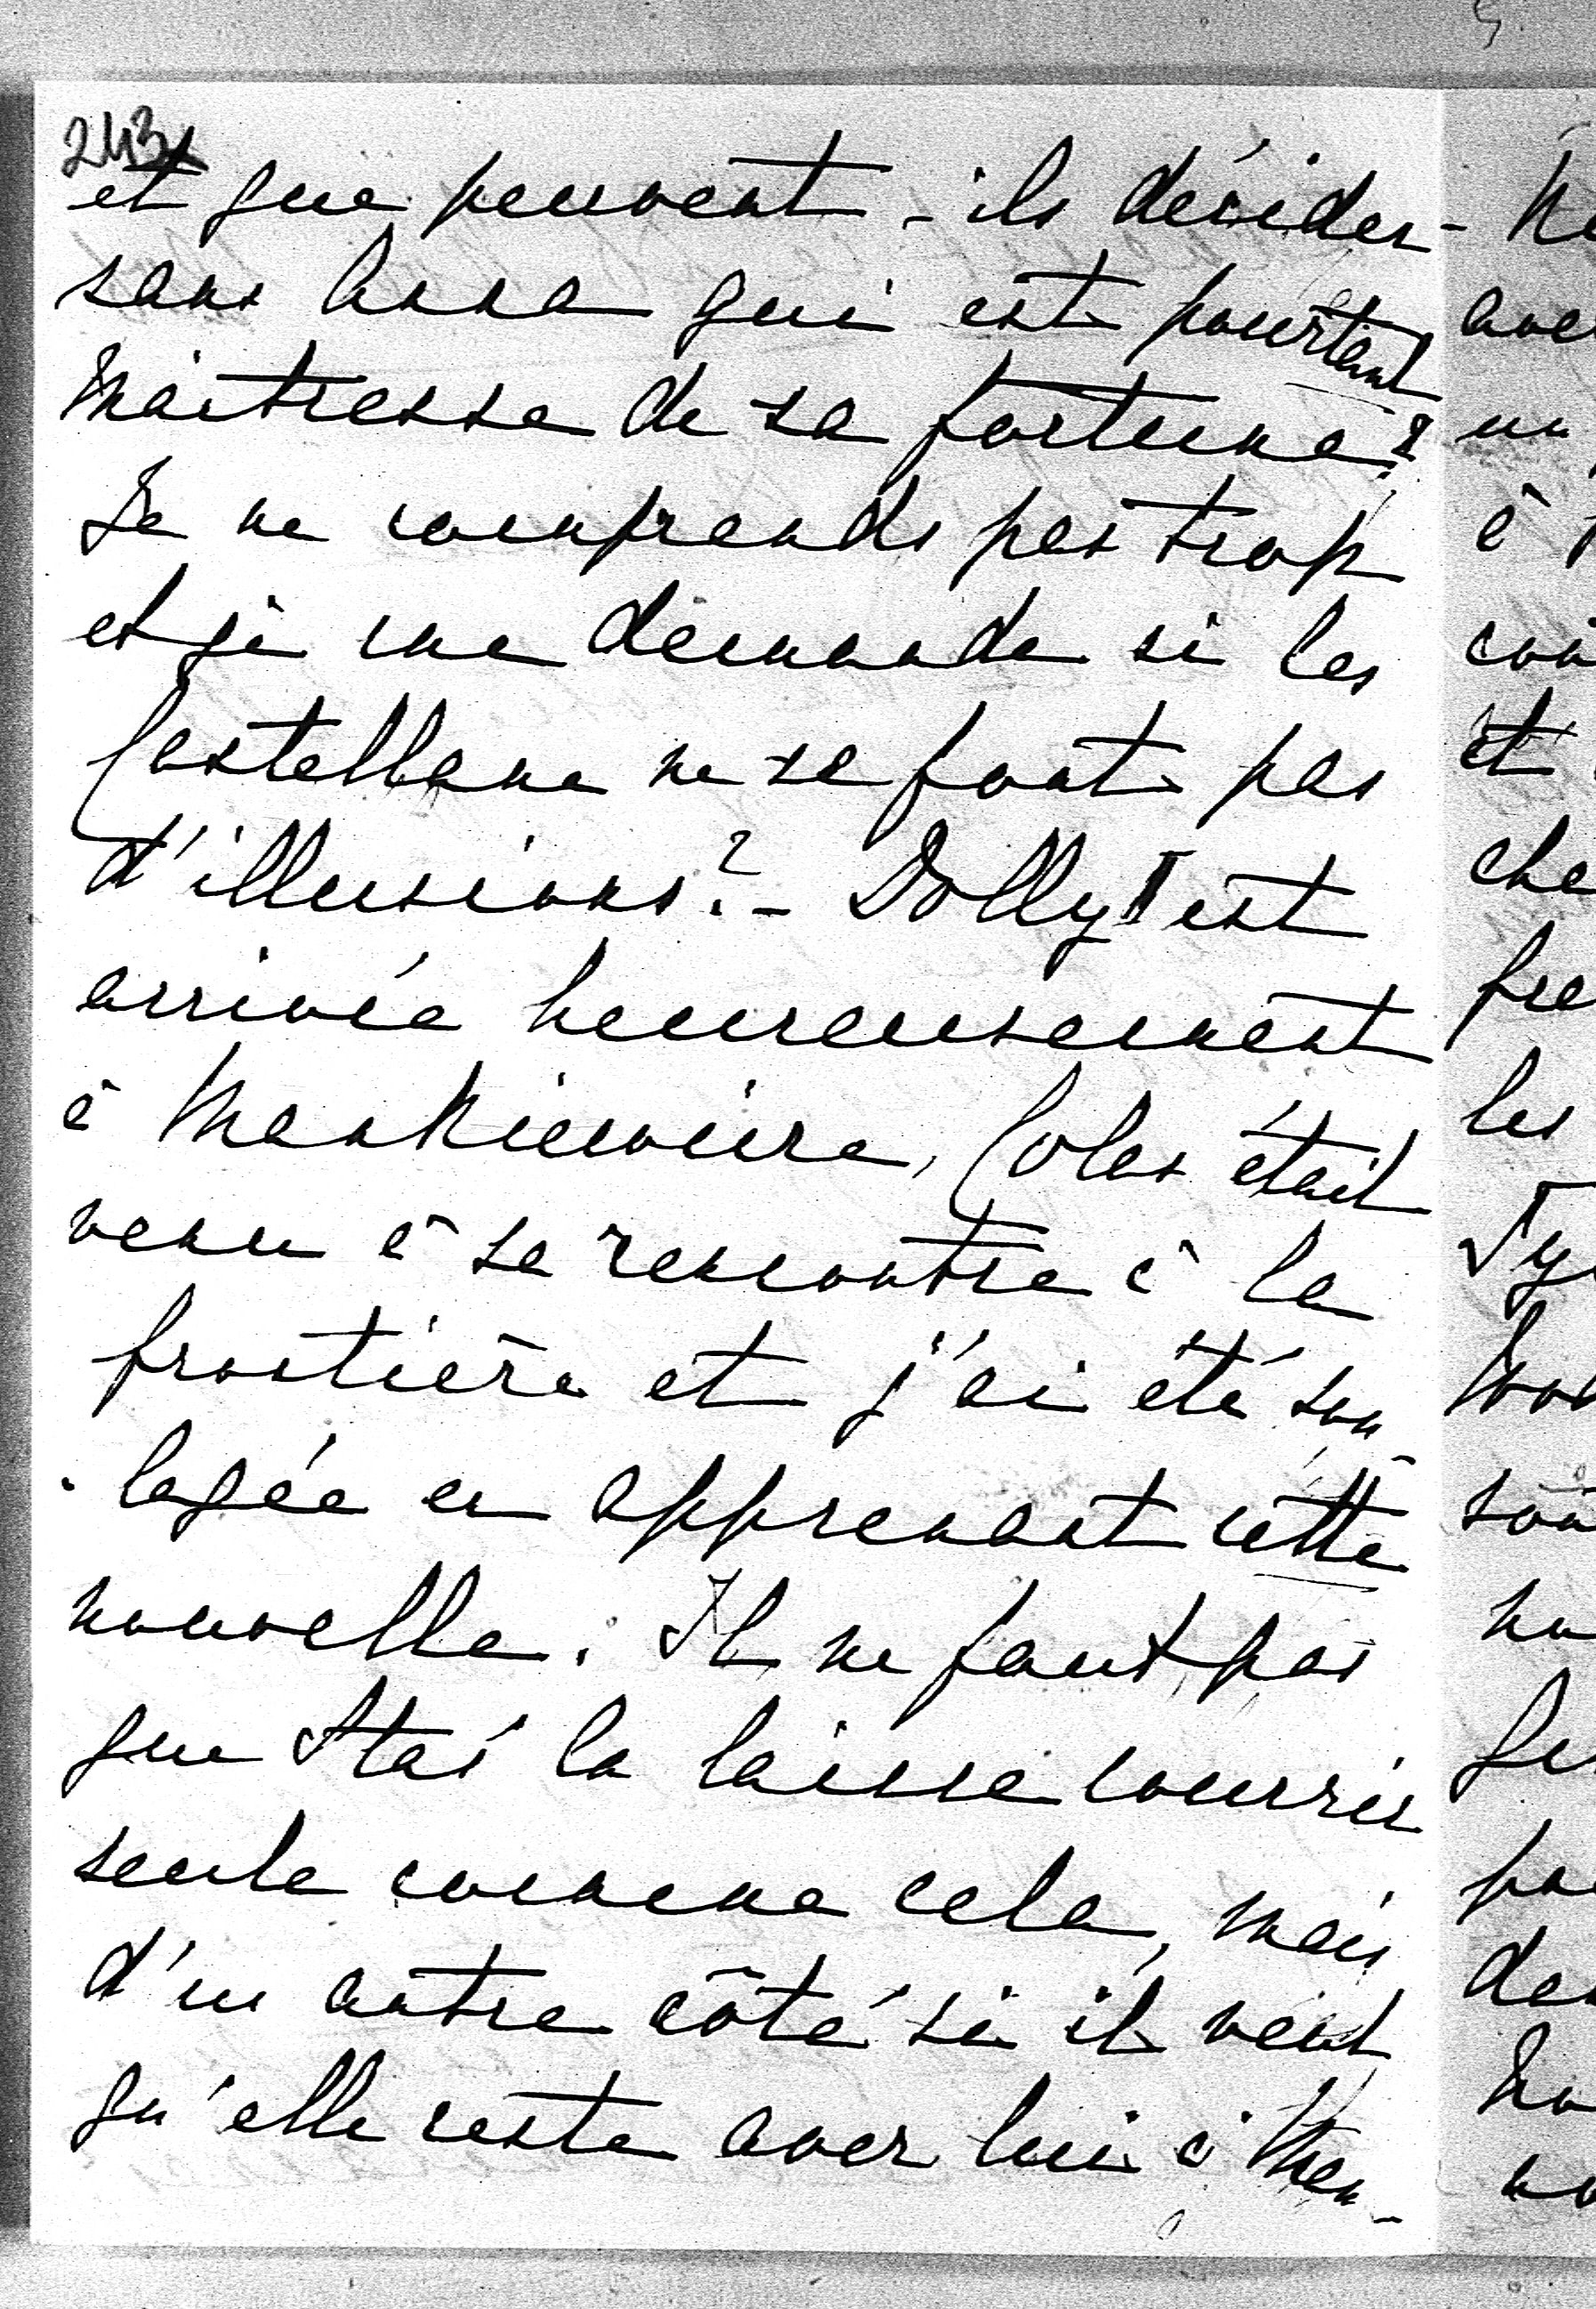 243
et que peuvent-ils décider
sans Anna qui est pourtant
Maitresse de sa fortune?
Je ne comprends pas trop
et je me demande si les
Castellane ne se font pas
d'illusions? - Dolly est
arrivée heureusement
à Mankiewicze, Colas était
venu à sa rencontre à la
frontière et j'ai été sou-
lagée en apprenant cette
nouvelle. Il ne faut pas
que Stas la laisse courrir
seule comme cela, mais
d'un autre côté si il veut
qu'elle reste avec lui à Man-